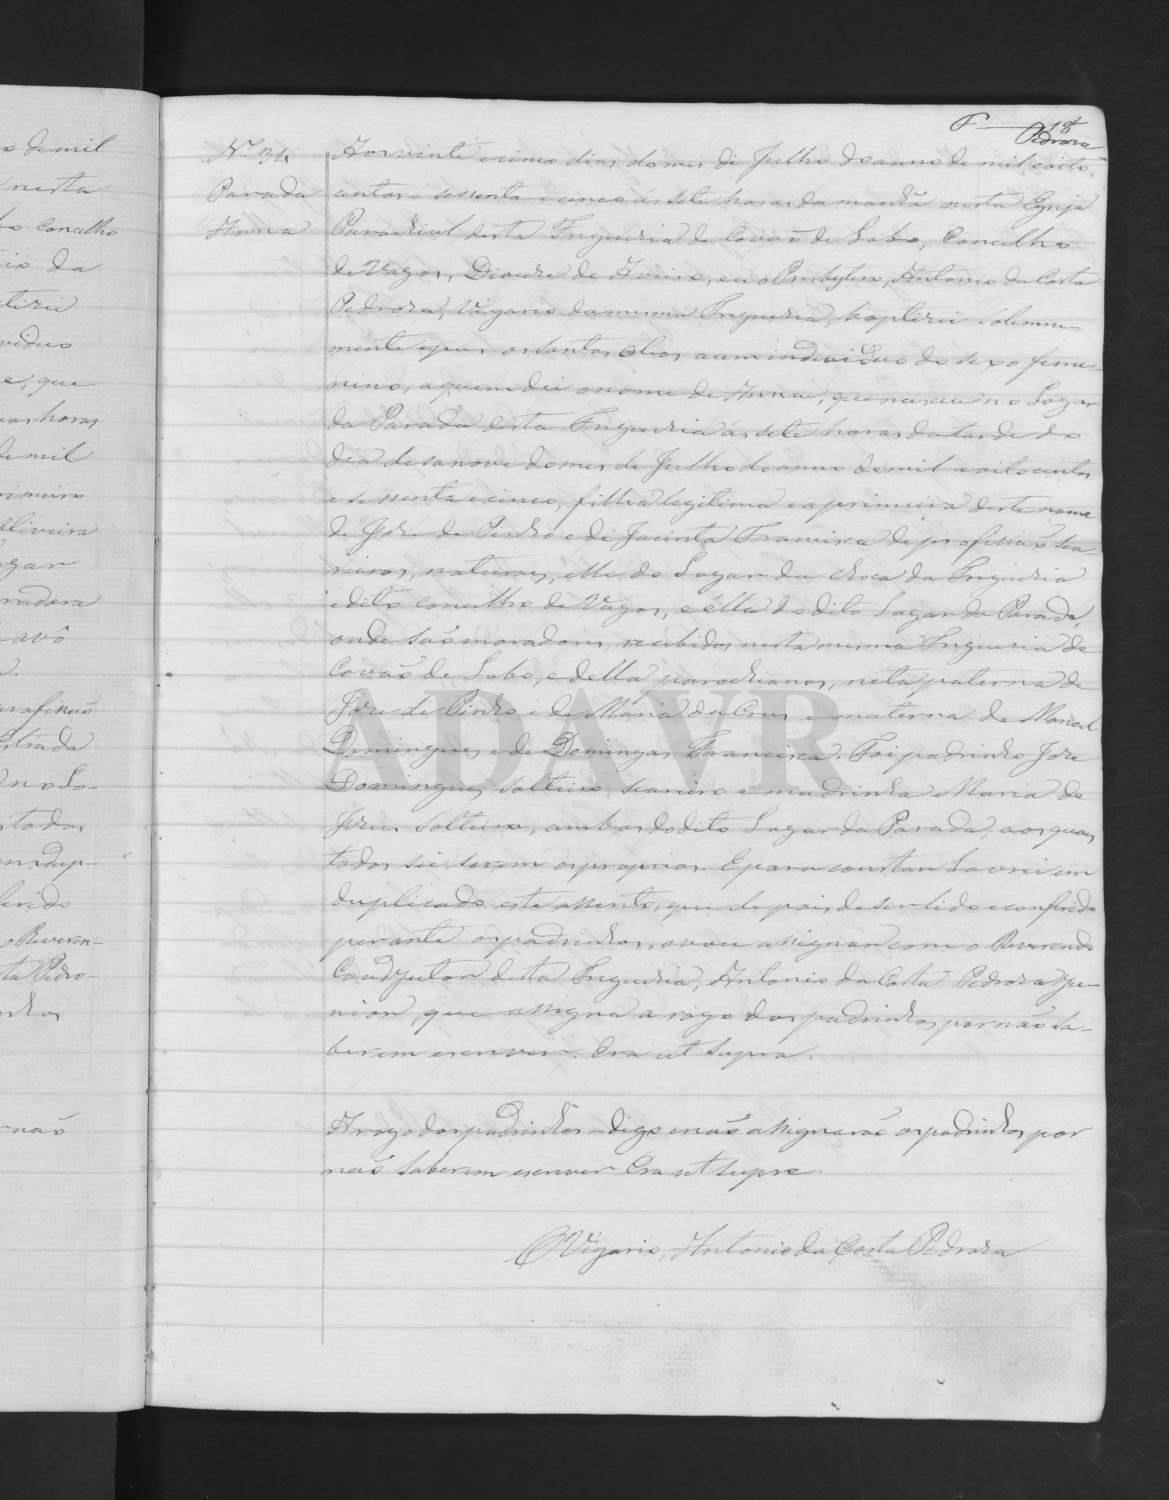 18
Pedroza
Nº 34
Parada
Anna
Aos vinte e cinco dias do mes de Julho do anno de mil e oito-
centos e sessenta e cinco ás sete horas da manhã nesta Egreja
Parochial desta Freguezia de Covão de Lobo, Concelho
de Vagos, Diocese de Aveiro, eu o Presbytero, Antonio da Costa
Pedroza, Vigario da mesma Freguezia, baptizei solemne-
mente e puz os santos oleos a um individuo do sexo feme-
nino, a quem dei o nome de Anna, que nasceu no Logar
da Parada desta Freguezia ás sete horas da tarde do
dia desanove do mes de Julho do anno de mil e oito centos
e sessenta e cinco, filha legitima e a primeira deste nome
de Joze de Pinho e de Jacinta Francisca de profissão sea-
reiros, naturaes, elle do Logar da da Freguezia
e dito concelho de Vagos, e élla do dito Logar da Parada,
onde são moradores, recebidos nesta mesma Freguezia de
Covão de Lobo, e della parochianos, neta paterna de
Joze de Pinho e de Maria da Cruz e materna de Manoel
Domingues e de Domingas Francisca. Foi padrinho Joze
Domingues, solteiro seareiro e madrinha Maria de
Jezus solteira, ambos do dito Logar da Parada, aos quaes
todos sei serem os proprios. E para constar lavrei em
duplicado este assento, que depois de ser lido e conferido
perante os padrinhos, o vou assignar com o Reverendo
Coadjutor desta Freguezia, Antonio da Costa Pedroza Ju-
nior que assigna a rogo dos padrinhos por não sa-
berem escrever. Era ut supra.
A rogo dos padrinhos - digo e não assignarão os padrinhos por
não saberem escrever Era ut supra.
O Vigario, Antonio da Costa Pedroza
o de mil
nesta
concelho
io da
tizei
viduo
e, que
as horas
de mil
rimeiro
Oliveira
gar
radora
avô
a.
profissão
Estrada
no Lo-
todos
em dup-
ferido
o Reveren-
ta Pedro-
nhos
não
ADAVR